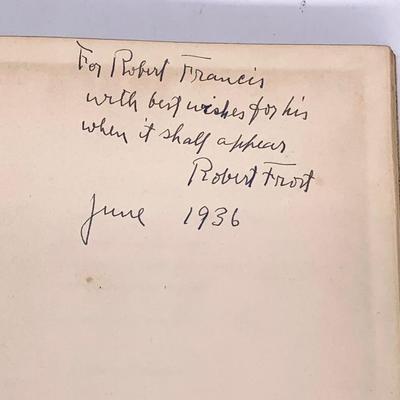 For Robert Francis
with best wishes for his
when it shall appear
Robert Frost
June 1936